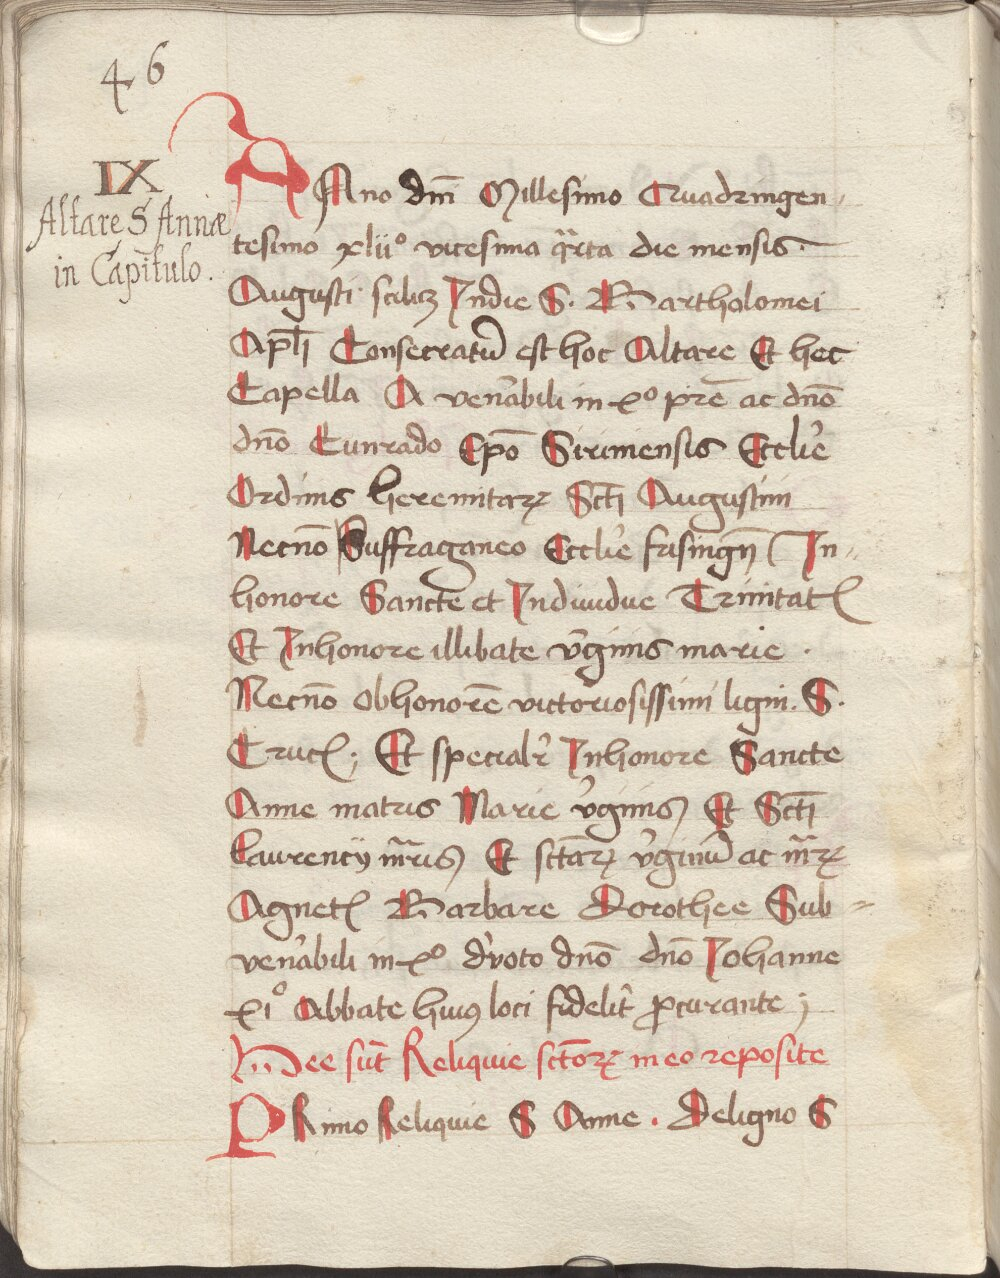 46
IX
Altare S Annæ
in Capitulo.
ANno dm̄i Millesimo Quadringen-
tesimo xlijº vicesima qr̄ta die mensis.
Augusti scilicꝫ Indie S. Bartholomei
Apl̄i Consecratū est hoc Altare Et hec
Capella A ven̄abili in xº pr̄e ac dn̄o
dn̄o Cunrado Ep̄o Sirimensis Eccl̄ie
Ordinis heremitarꝝ Sct̄i Augustini
Necnō Suffraganeo Eccl̄ie frisingn̄ In-
honore Sancte et Indiuidue Trinitatꝭ
Et Inhonore illibate v̄ginis marie .
Necnō Obhonorē victoriosissimi ligni. S.
Crucꝭ; Et specialr̄ Inhonore Sancte
Anne matris Marie v̄ginis Et Sct̄i
laurencij mr̄ris Et sctārꝝ v̄ginū ac mr̄rꝝ
Agnetꝭ Barbare Dorothee Sub-
ven̄abili in xº d̄uoto dn̄o dn̄o Iohanne
xiº Abbate huiꝰ loci fidelit̄ ꝓcurante;
Hee sūt Reliquie sctōrꝝ in eo reposite
PRimo Reliquie S Anne . Deligno S